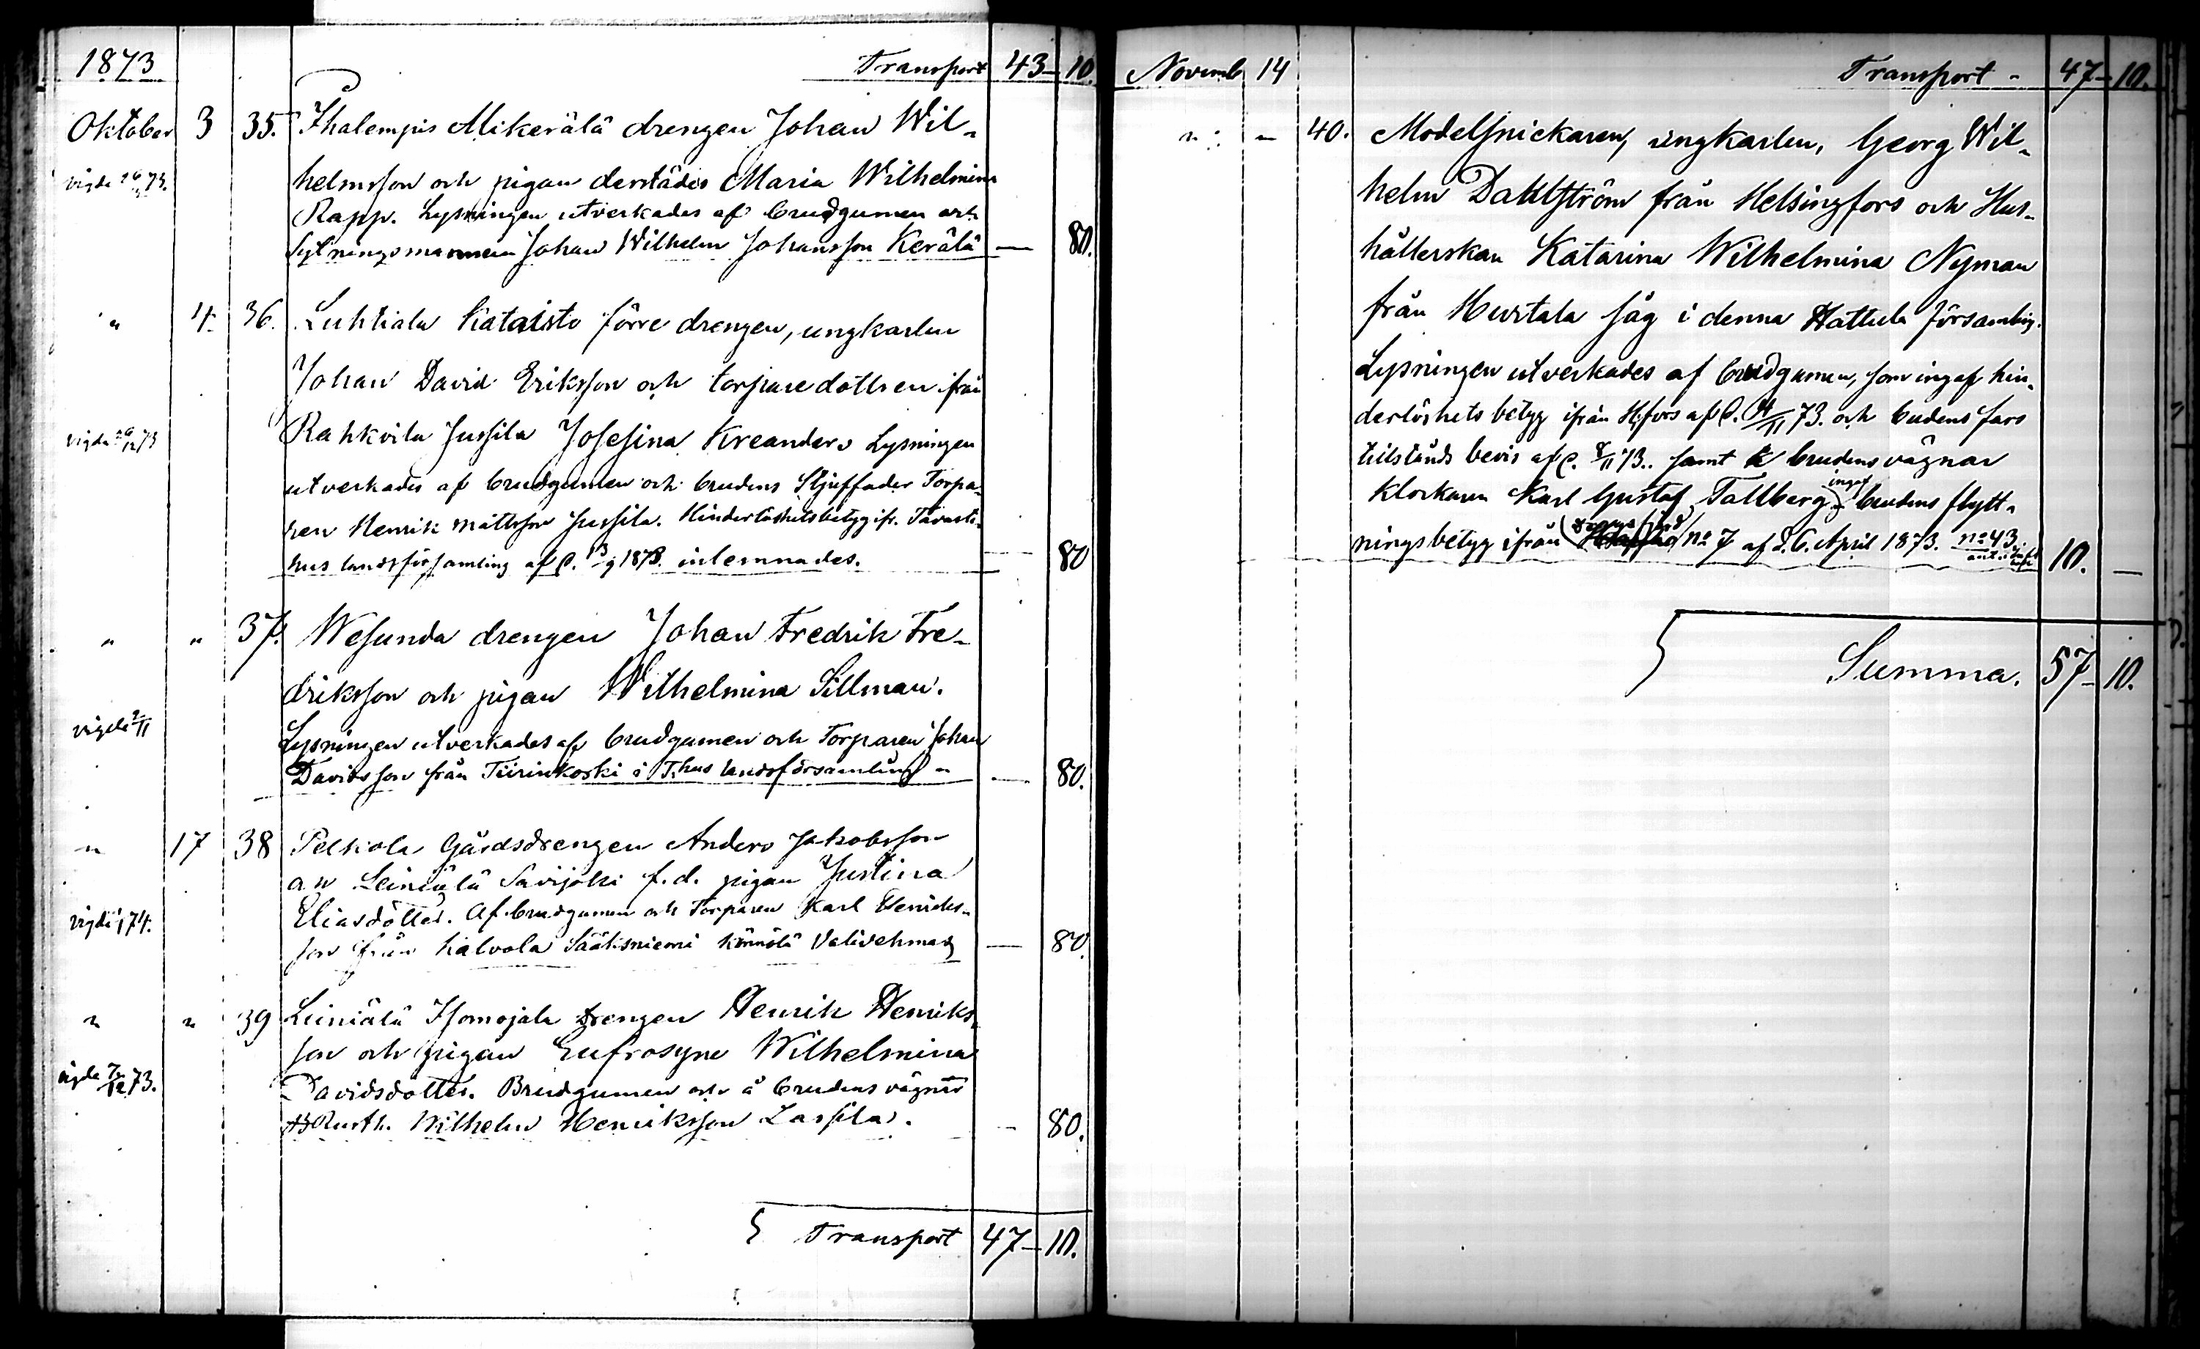 1873 Transport 43 - 10.
Oktober 3 35. Ihalempis Alikerälä drengen Johan Wil-
vigde 73. helmsson och pigan derstädes Maria Wilhelmina
Rapp. Lysningen utverkades af brudgumen och
Sytningsmannen Johan Wilhelm Johansson Kerälä — 80.
" 4. 36. Luhtiala Kataisto förre drengen, ungkarlen
Johan David Eriksson och torparedottren ifrån
vigde 73 Rahkoila Jussila Josefina Kreanders Lysningen
utverkades af brudgumen och brudens Stjuffader Torpa-
ren Henrik Mattsson Jussila. Hinderlöshetsbetyg ifr. Tavaste-
hus landsförsamling af d. 13/9 1873. inlemnades. — 80
" " 37. Wesunda drengen Johan Fredrik Fre-
driksson och pigan Wilhelmina Sillman.
vigde 2/11 Lysningen utverkades af brudgumen och Torparen Johan
Davidsson från Tiirinkoski i T:hus landsförsamling - — 80.
" 17 38 Pelkola Gårdsdrengen Anders Jakobsson
o. Leiniälä Savijoki f.d. pigan Justina
vigde 74. Eliasdotter. Af brudgumen och Torparen Karl Henriks-
son från Kalvola Sääksniemi Könnölä — 80.
" " 39 Leiniälä Isomojala drengen Henrik Henriks-
son och pigan Eufrosyne Wilhelmina
vigde 7/12 73. Davidsdotter. Brudgumen och å brudens vägnar
Rusth. Wilhelm Henriksson Lassila. - 80.
Transport 47 - 10.
Novemb 14 Transport - 47 - 10.
" - 40. Modelsnickaren, ungkarlen, Georg Wil-
helm Dahlström från Helsingfors och Hus-
hållerskan Katarina Wilhelmina Nyman
från Hurtala såg i denna Hattula församling.
Lysningen utverkades af brudgumen, som ingaf hin-
derlöshets betyg ifrån H:fors af d. /11 73. och brudens fars
tillstånds bevis af d. 8/11 73.. samt å brudens vägnar
Klockaren Karl Gustaf Tallberg ingaf brudens flytt-
ningsbetyg ifrån no 7 af d. 6. April 1873. no 43. 10. —
Summa. 57 - 10.